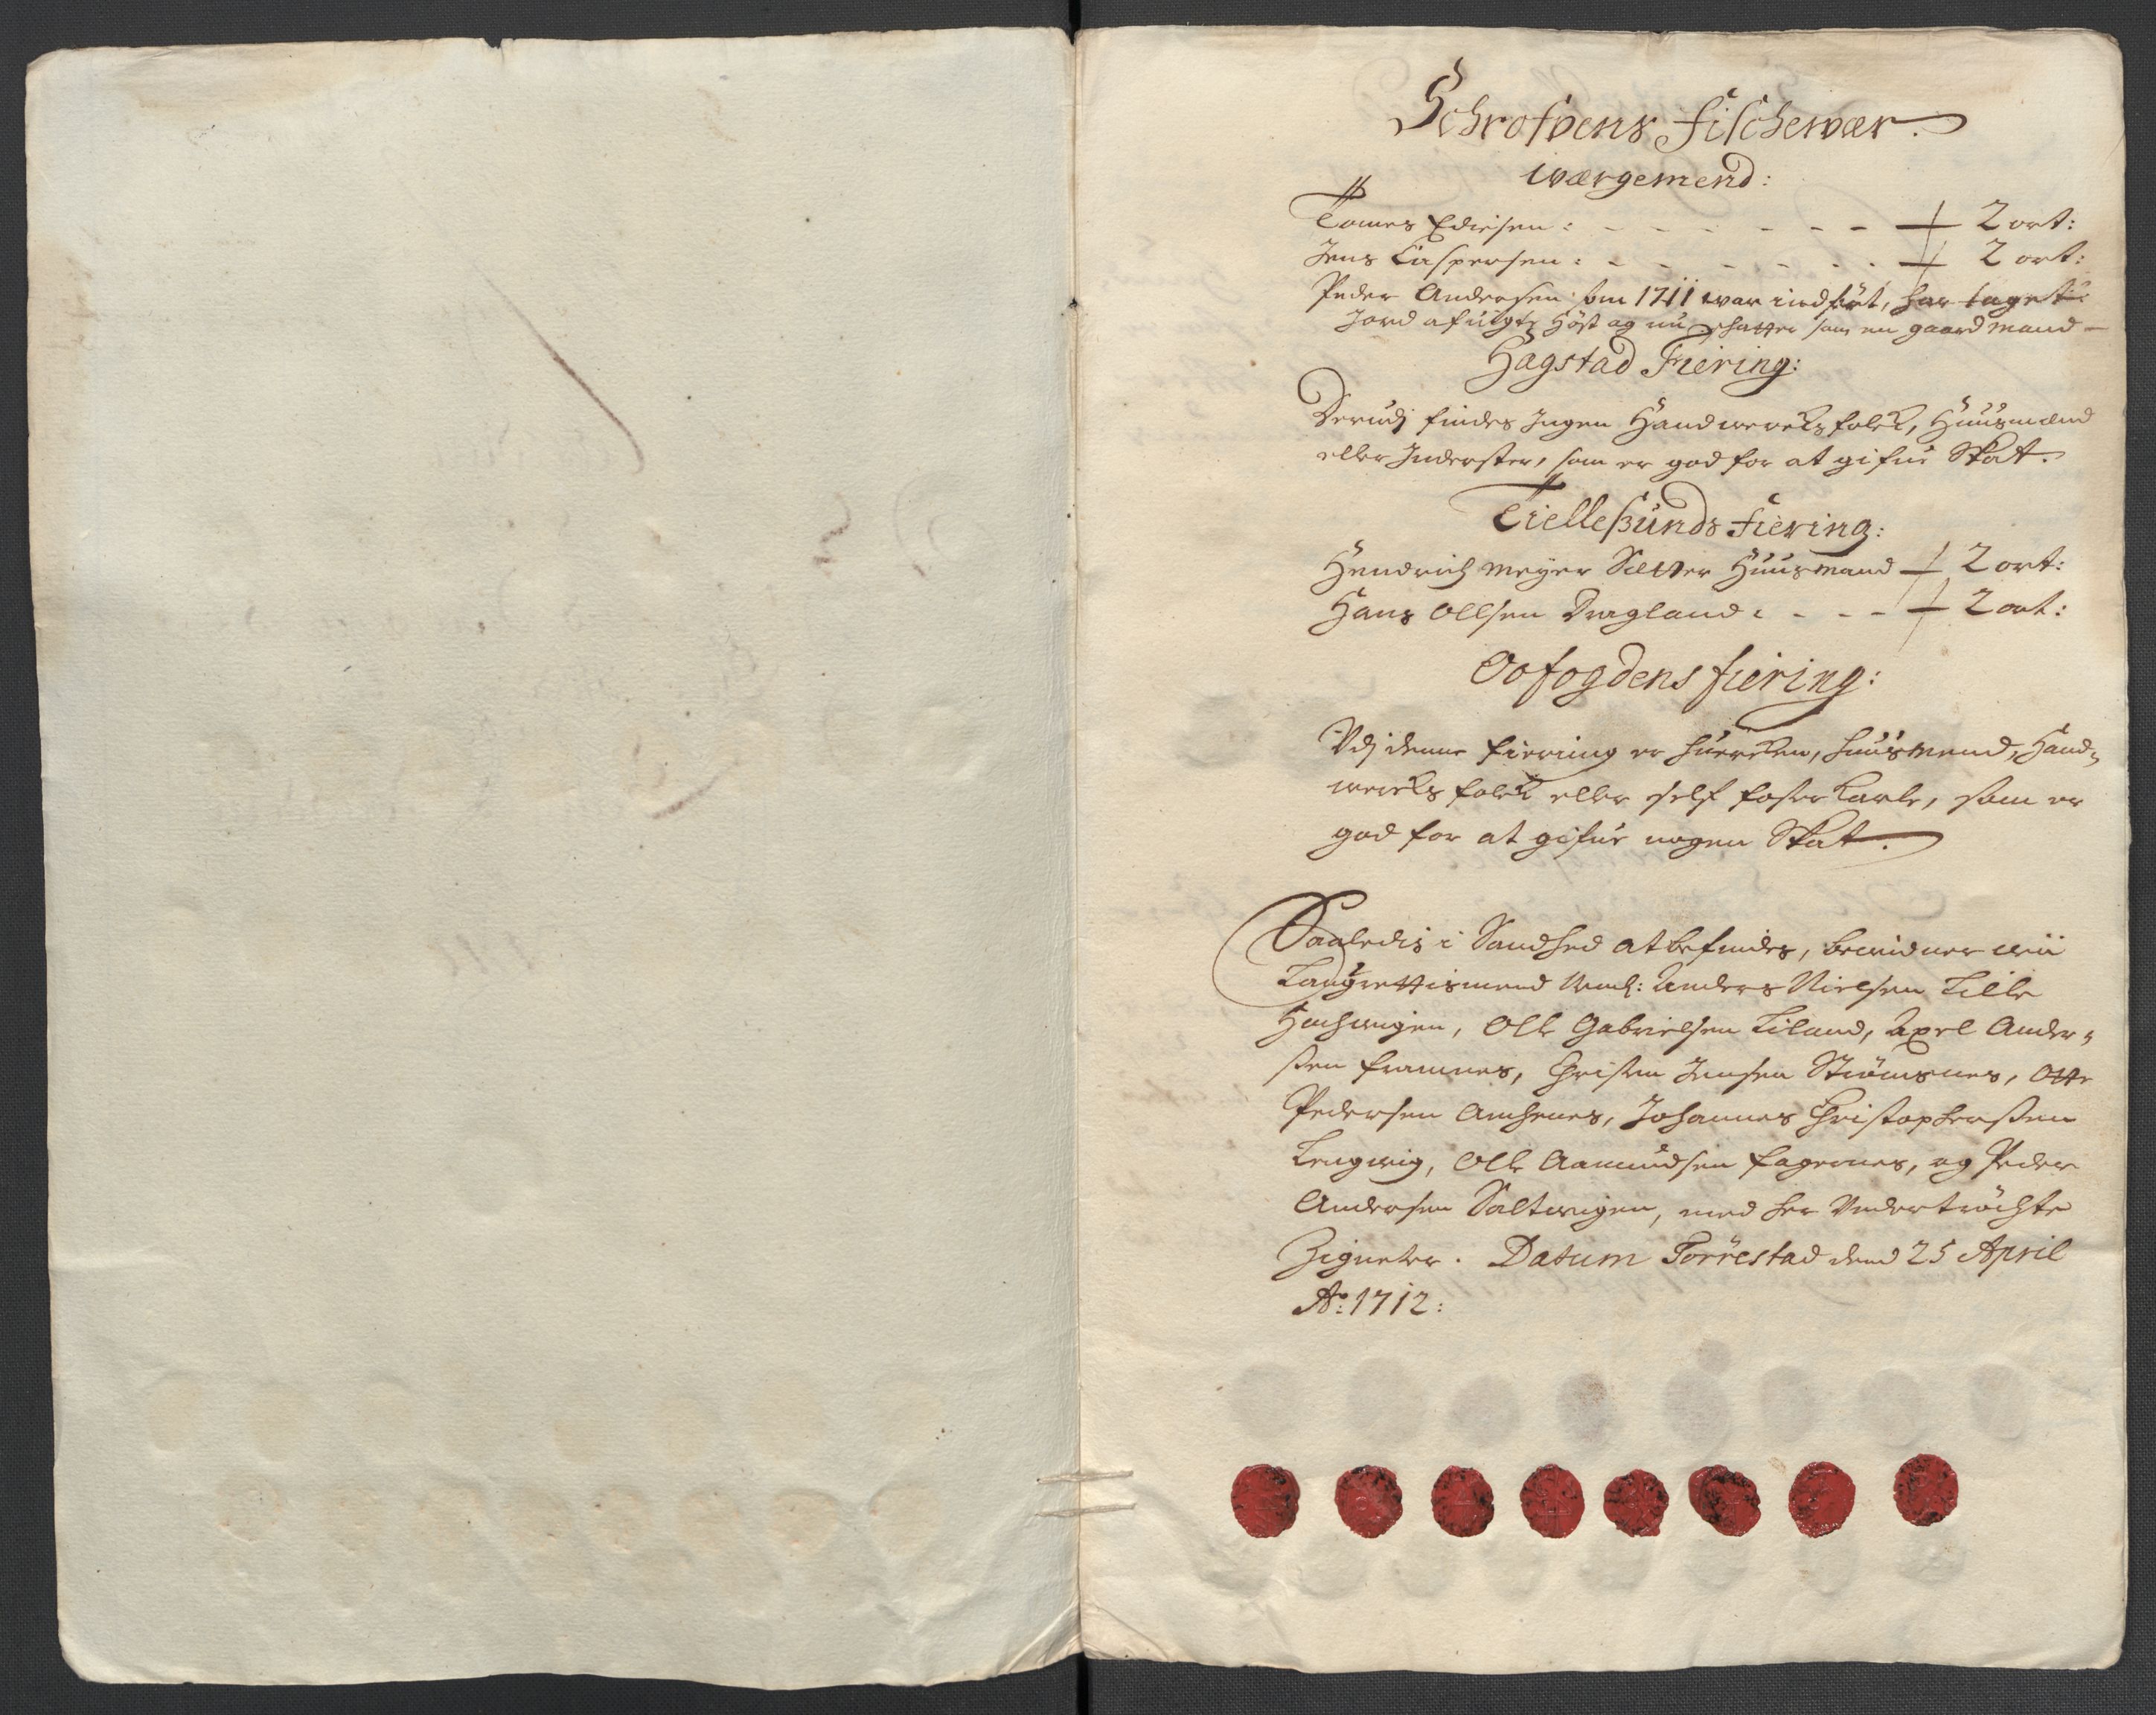 Schrofvens Fischewær.
wærgemend:
Tomes Edisen: - - - - - - - 2 ort:
Jens Caspersen: - - - - - - - 2 ort:
Peder Andersen som 1711 war indført, har taget
Jord afvigte Høst og nu schatter som en gaardmand -
Hagstad Fiering:
Derudj findes Ingen Handwercksfolck, Huusmænd
eller Inderster, som er god for at gifue Skat.
Tiellesunds Fiering:
Hendrich Meyer Huusmand 2 ort:
Hans Ollsen Dragland: - - - 2 ort:
Oofogdens fiering:
Udj denne fiering er huercken, huusmend, Hand-
wercks folck eller self foster Karle, som er
god for at gifue nogen Skat.
Saaledis i Sandhed at befindes, bewidner wii
Laugrettismend Neml: Anders Nielsen Lille
Ole Gabrielsen Liland, Axel Ander-
sen Framnes, Christen Jensen Strømsnes, Otte
Pedersen Johannes Christophersen
Lengwig, Ole Aamundsen Fagernes, og Peder
Andersen Saltwigen, med her Undertrøchte
Zigneter. Datum Torrestad dend 25 April
Ao: 1712: